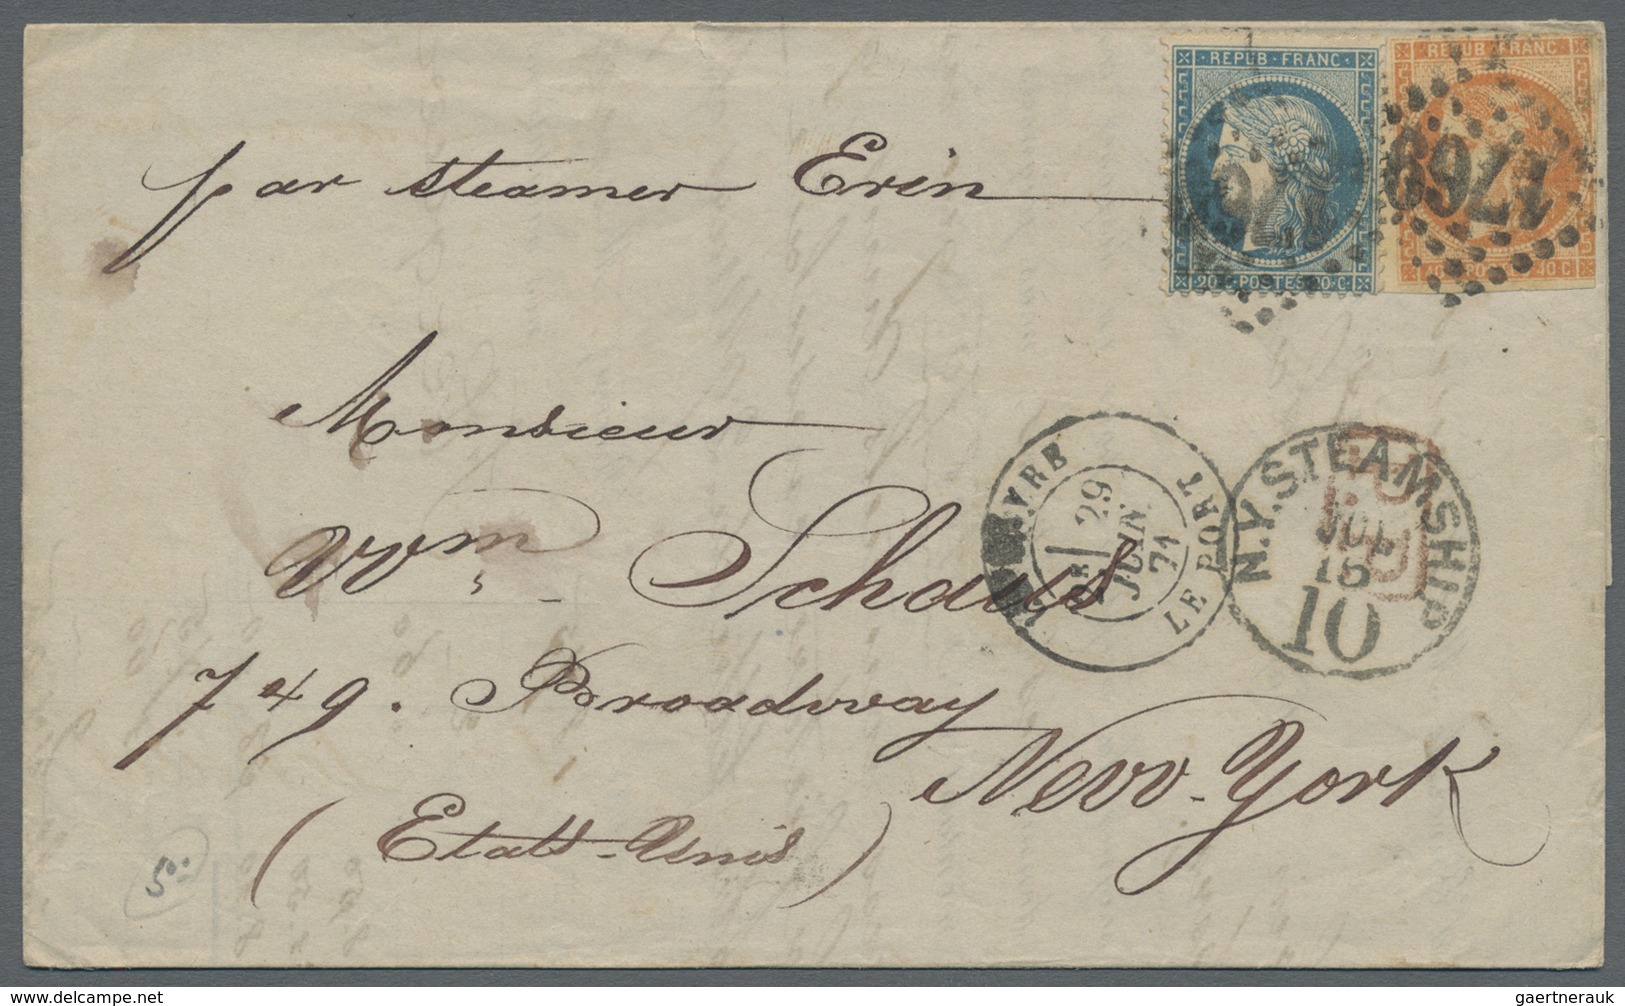 REPUB FRANC
20 C POSTES 20 C
REPUB FRANC
40 C POSTES 40 C
1769
par steamer Erin
Monsieur
Wm Schaus
749. Broadway
New-York
(Etats-Unis)
29
JUIN
71
LE PORT
N.Y. STEAMSHIP
JUL
15
10
PD
50
www.delcampe.net
gaertnerauk